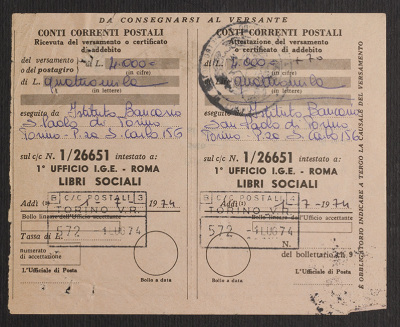 DA CONSEGNARSI AL VERSANTE
CONTI CORRENTI POSTALI
Ricevuta del versamento o certificato
di addebito
del versamento
o del postagiro
di L. 4.000=
(in cifre)
di L. quattromila
(in lettere)
eseguito da Istituto Bancario
S. Paolo di Torino
Torino - P.za S. Carlo 156
sul c/c N. 1/26651 intestato a:
1° UFFICIO I.G.E. - ROMA
LIBRI SOCIALI
Addì (1) 7 1974
B C/C POSTALI 3
TORINO V.R.
Bollo lineare dell'Ufficio accettante
572 -1 LUG 74
Tassa di L.
Numerato
di accettazione
L'Ufficiale di Posta
Bollo a data
CONTI CORRENTI POSTALI
Attestazione del versamento
o certificato di addebito
di L. 4.000= +70
(in cifre)
di L. quattromila
(in lettere)
eseguito da Istituto Bancario
San Paolo di Torino
Torino - P.za S. Carlo 156
sul c/c N. 1/26651 intestato a:
1° UFFICIO I.G.E. - ROMA
LIBRI SOCIALI
Addì (1) 7 - 1974
B C/C POSTALI 4
TORINO V.R.
Bollo lineare dell'Ufficio accettante
572 -1 LUG 74
N.
del bollettario ch 9
L'Ufficiale di Posta
Bollo a data
È OBBLIGATORIO INDICARE A TERGO LA CAUSALE DEL VERSAMENTO